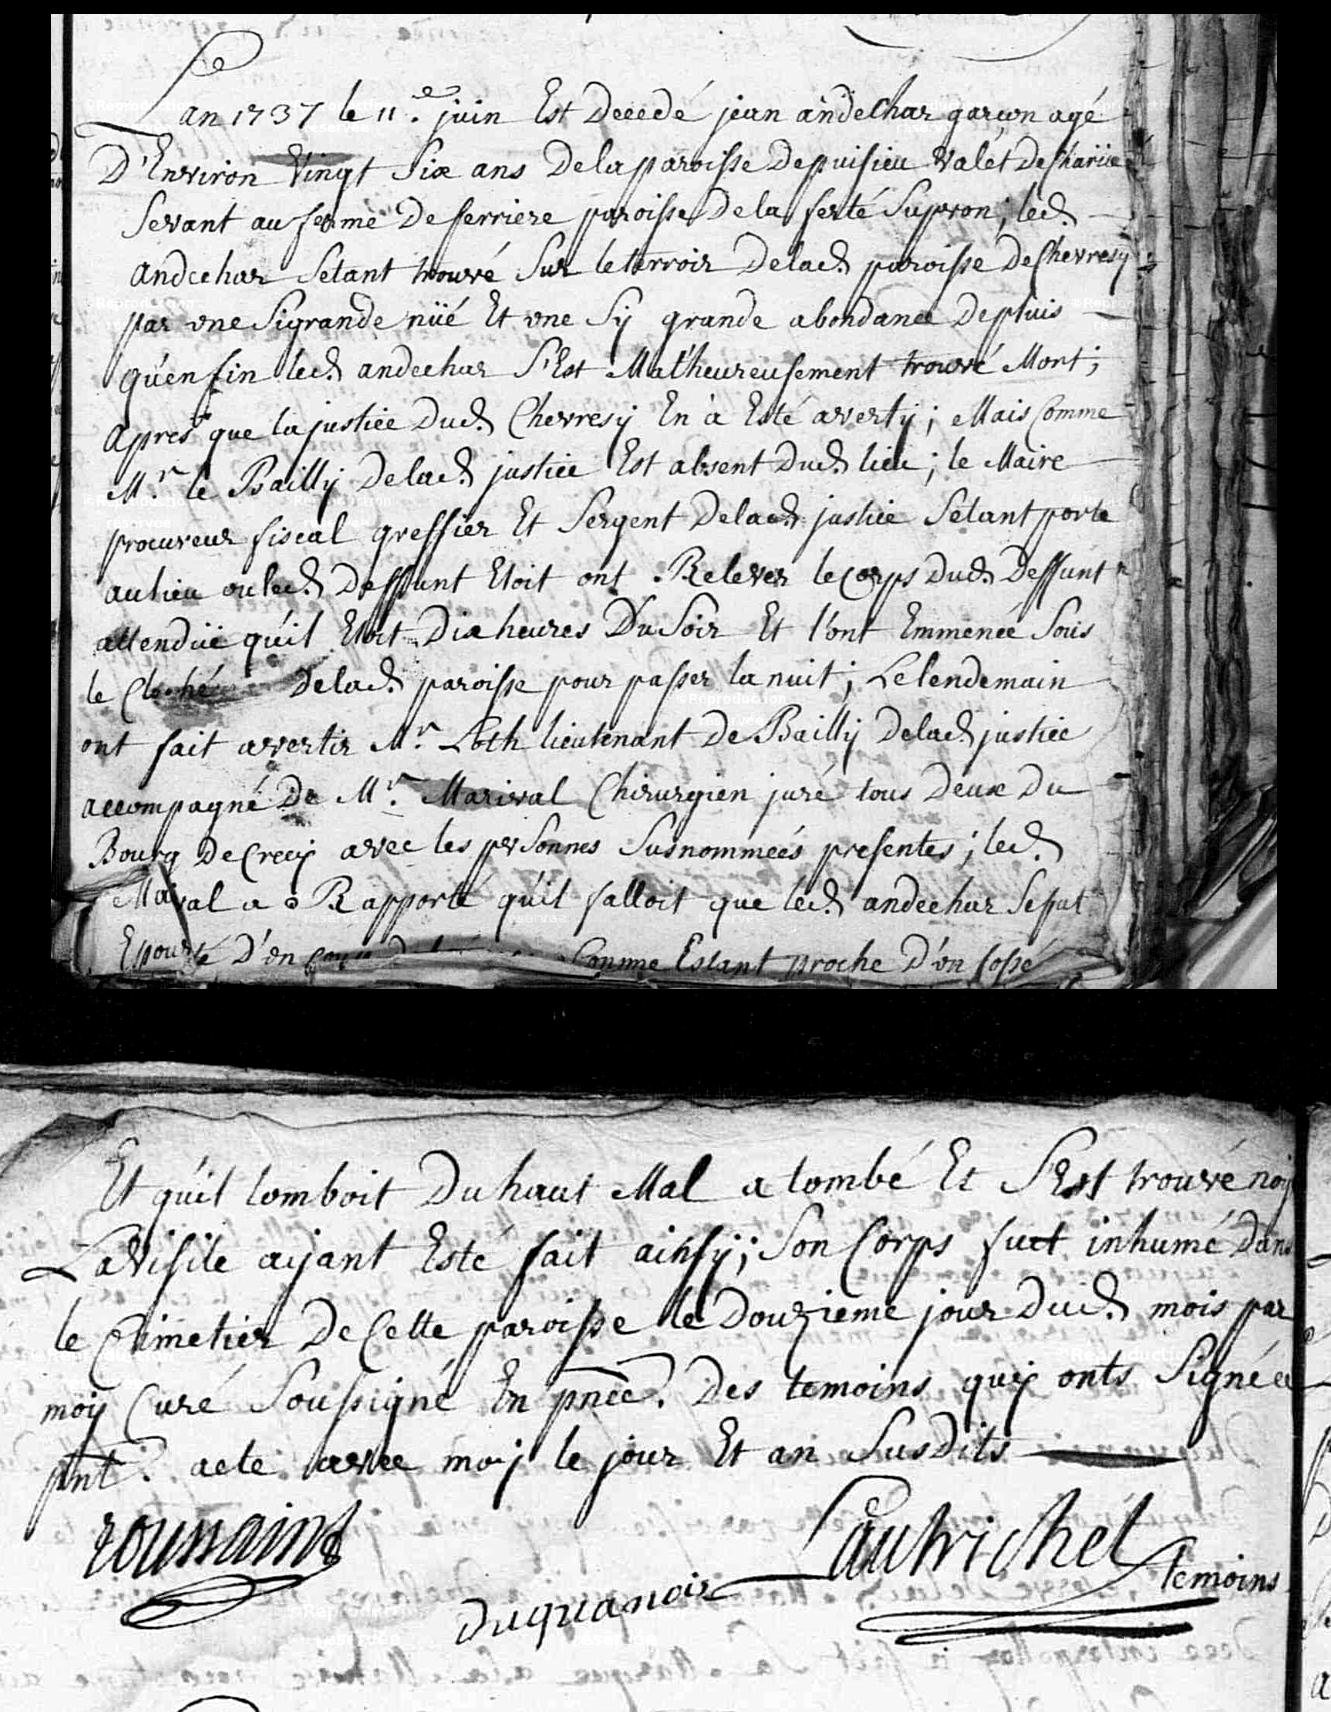 Lan 1737 le 11e. juin Est Deccedé jean andechar garçon agé
D'Environ Vingt Six ans De la paroisse De puisieu Valet De Charüe
Servant au ferme De ferriere paroisse De la ferté Supron; led.
andechar Setant trouvé Sur le terroir De lad. paroisse De Chevresy
par vne Si grande nüé Et vne Sy grande abondance De pluis
qu'en fin led. andechar S'Est Malheureusement trouvé Mort;
apres que la justice Dud. Chevresy En à Esté averty; Mais Comme
Mr. le Bailly De lad. justice Est absent Dud. lieu; le Maire
procureur fiscal greffier Et Sergent De lad. justice Setant porte
au lieu ou led. Deffunt Etoit ont Relever le corps Dud. Deffunt
attendüe qu'il Etoit Dix heures Du Soir Et l'ont Emmenée Sous
le Cloché De lad. paroisse pour passer la nuit; Le lendemain
ont fait avertir Mr. Loth lieutenant De Bailly De lad. justice
accompagné De Mr. Marival Chirurgien juré tous Deux Du
Bourg De Crecy avec les personnes Susnommées presentes; led.
Marival a Rapporté qu'il falloit que led. andechar Se fut
D'en Comme Estant proche D'vn fossé
Et qu'il tomboit Du haut Mal a tombé Et S'Est trouvé noy
La Visite aÿant Esté fait ainsy; Son Corps fuct inhumé Dans
le Cimetier De Cette paroisse le Douzieme jour Dud. mois par
moy Curé Soussigné En pnce. Des temoins quy onts Signée
pnt. acte avec moy le jour Et an Susdits
roussains
Lautrichel temoins
Duquanoir